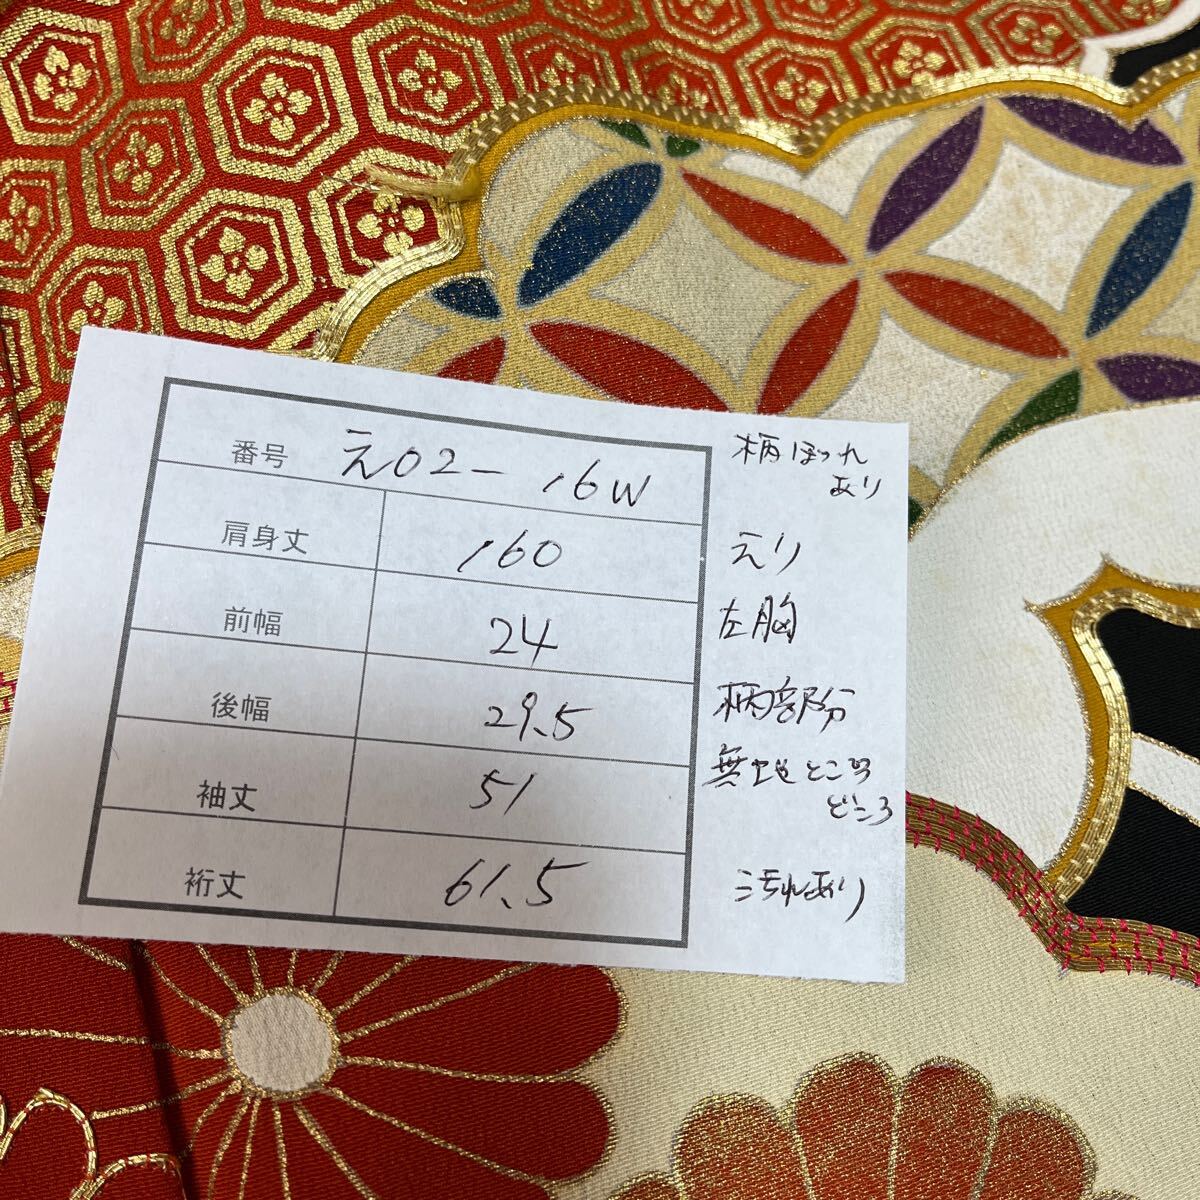 番号 え02-16W
肩身丈 160
前幅 24
後幅 29.5
袖丈 51
裄丈 61.5
柄ほつれ
あり
えり
左胸
柄部分
無地ところ
どころ
汚れあり